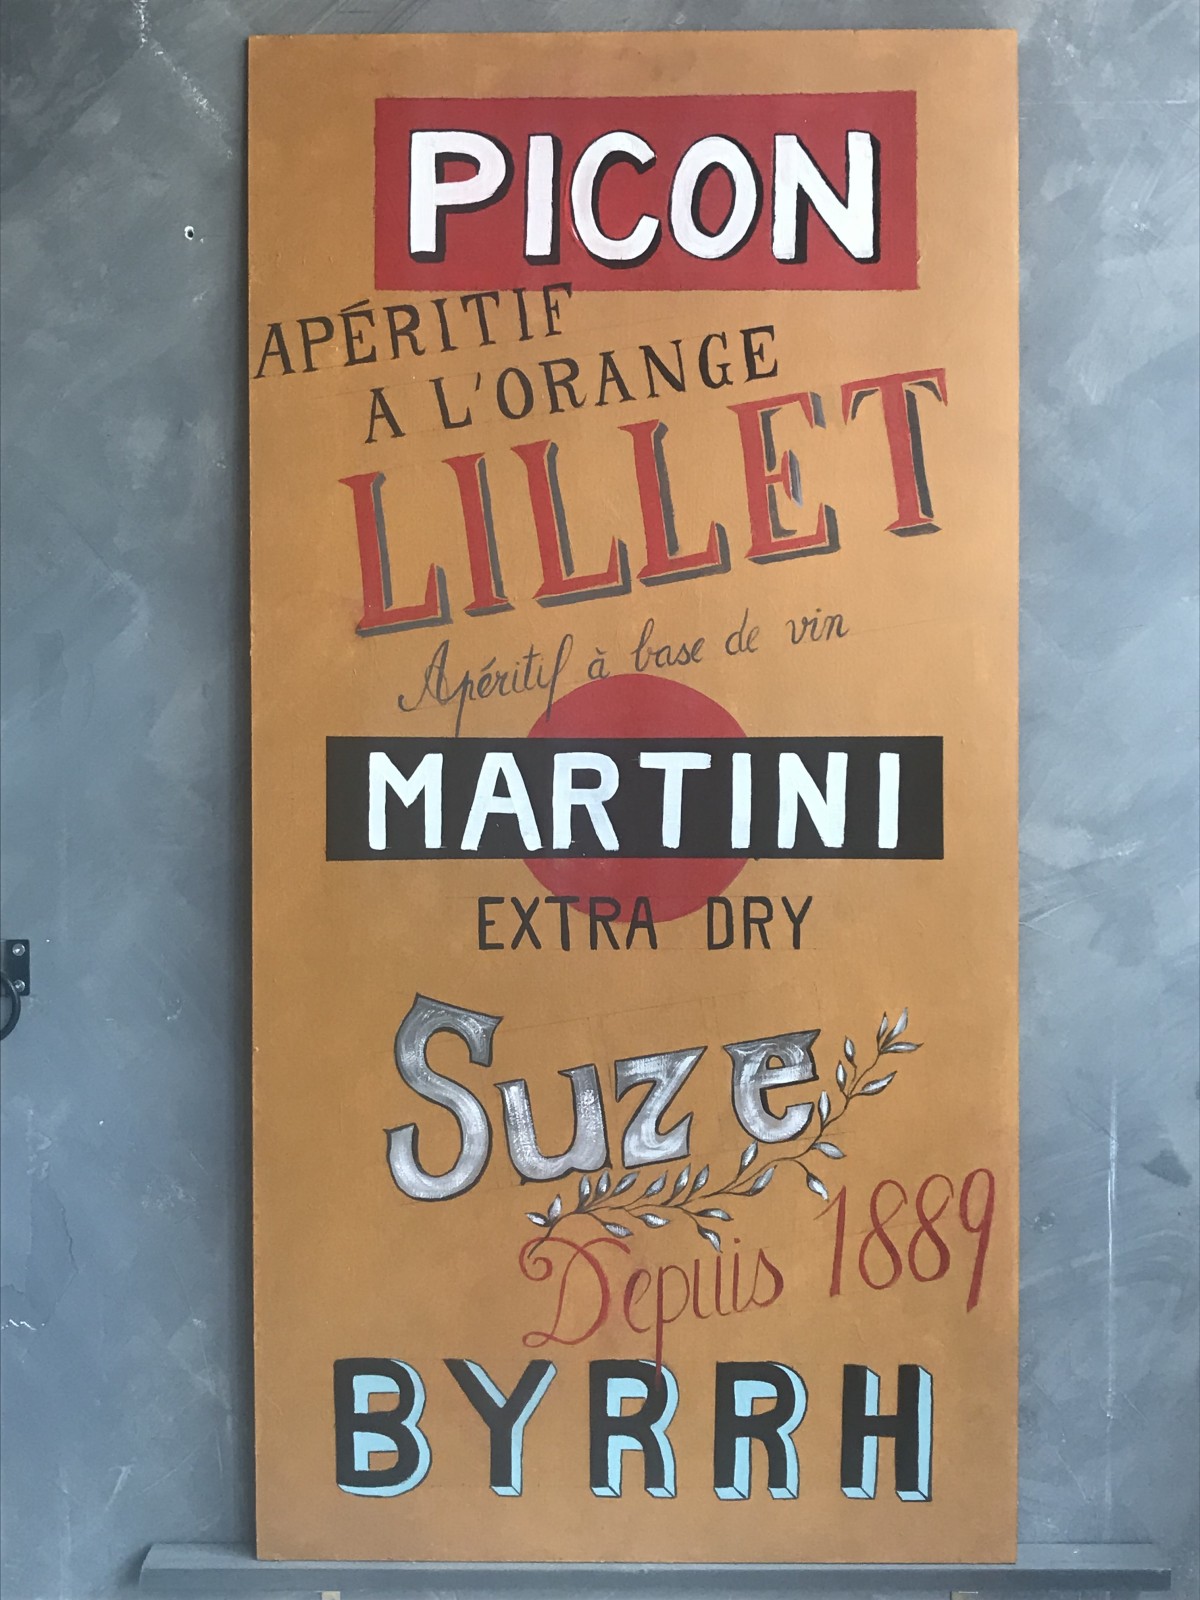 PICON
APÉRITIF
A L'ORANGE
LILLET
Apéritif à base de vin
MARTINI
EXTRA DRY
Suze
Depuis 1889
BYRRH